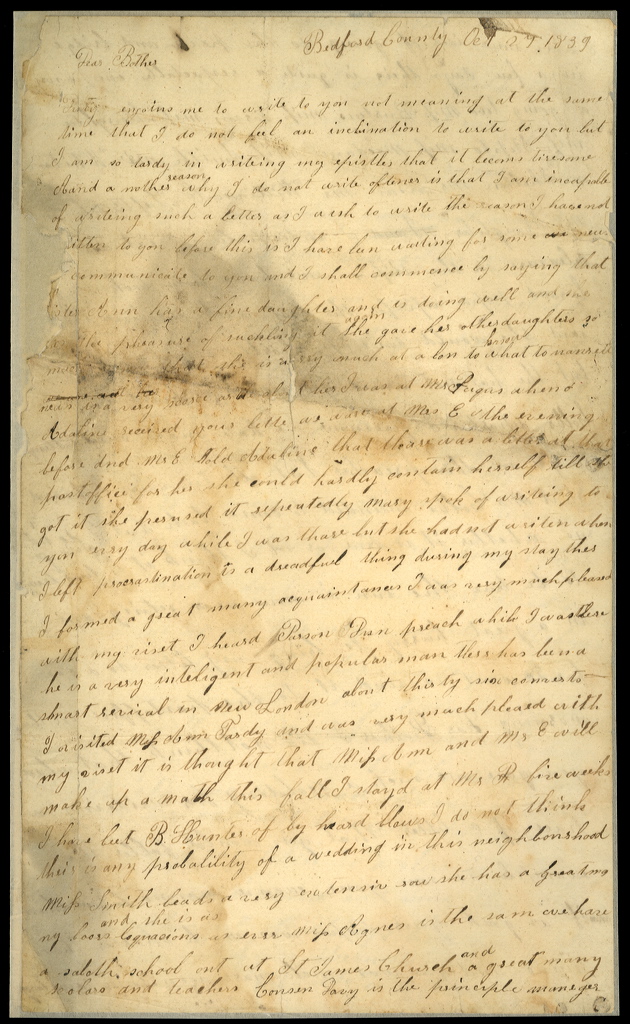 Bedford County Oct 27 1839
Dear Bother
enjoins me to write to you not meaning at the same
time that I do not feel an inclination to write to you but
I am so tardy in writeing my epistles that it becoms tiresome
and a nother reason why I do not write oftener is that I am incapable
of writeing such a letter as I wish to write the reason I have not
to you before this is I have ben waiting for some news
communicate to you and I shall commence by saying that
Ann has a fine daughter and is doing well and
the pleasure of suckling it again she gave her other daughters so
much that she is very much at a loss to what to
news is very scarce I was at Mr
Adaline received your letter we ware at Mrs E the evening
before and Mr E told Adaline that thare was a letter at the
postoffice for her she could hardly contain herself till she
got it she perused it repeatedly Mary spok of writeing to
you evry day while I was thare but she had not writen when
I left procrastination is a dreadful thing during my stay ther
I formed a great many acquaintances I was very much pleased
with my viset I heard Parson preach while I was there
he is a very inteligent and popular man ther has been a
smart revival in New London about thirty six converts
I visited Miss Ann Tardy and was very much pleased with
my viset it is thought that Miss Ann and Mr E will
make up a math this fall I stayd at Mr five weeks
I have beet B Hunter of by hard blows I do not think
their is any probability of a wedding in this neighbourhood
Miss Smith leads a very extensive row she has a great ma
ny boors and she is as loquacious as ever Miss Agnes is the sam we have
a sabath school out at St James Church and a great many
scolars and teachers Consen Davy is the principle maneger